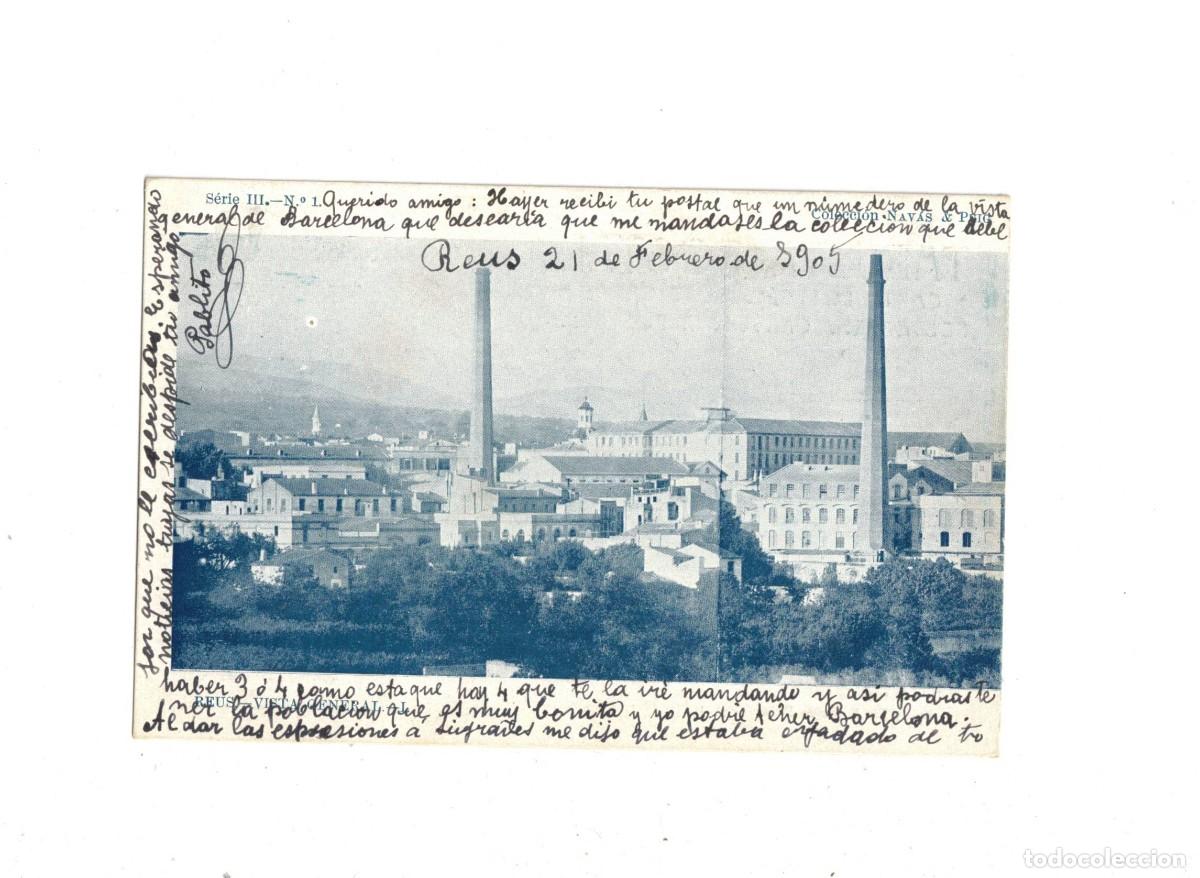 Série III.—N.º 1.
Querido amigo: Hayer recibi tu postal que un númedero de la vista
Colección NAVÁS & PUIG
general de Barcelona que desearia que me mandases la colección que debe
Reus 21 de Febrero de 1905
haber 3 ó 4 como esta que hay 4 que te la iré mandando y asi podras te
REUS.—VISTA GENERAL.—I.
ner la población que es muy bonita y yo podre teher Barcelona.
Al dar las espresiones a Sugrañes me dijo que estaba enfadado de tu
por que no le escribias. Esperando
noticias tuyas se despide tu amigo
Pablito
todocoleccion